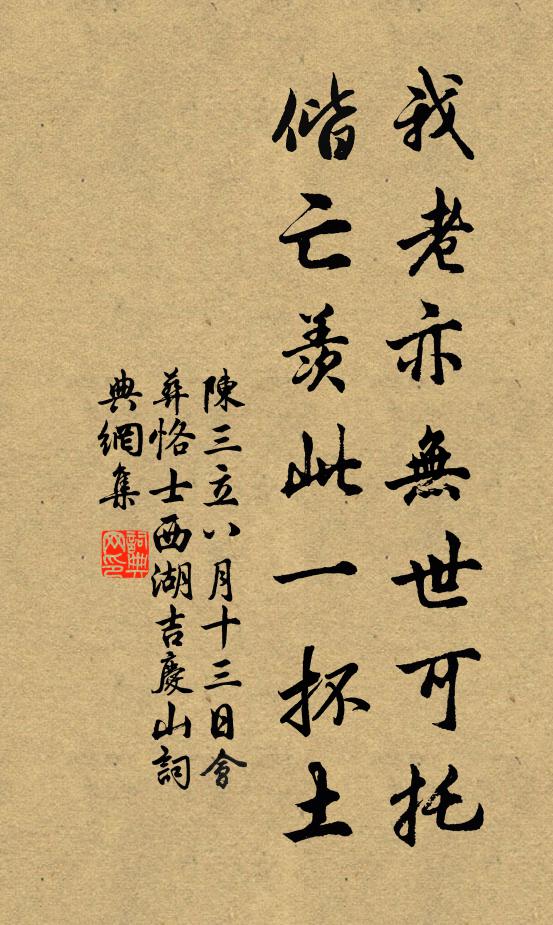 我老亦無世可托
偕亡羨此一抔土
陳三立八月十三日會
葬恪士西湖吉慶山詞
典網集
詞典
网印